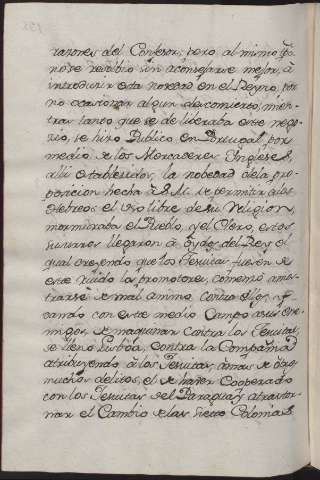 razones del Confesor; pero al mismo tpõ
no se resolbio sin aconsejarse mejor, à
introducir esta nobedad en el Reyno, por
no ocasionar algun desconcierto: mien-
tras tanto que se deliberaba este nego-
zio, se hizo Publico en Portugal por
medio de los Mercaderes Ingleses,
alli establecidos, la nobedad dela pro-
posicion hecha à S. M. de permitir alos
Hebreos el Uso libre de su Religion,
mormuraba el Pueblo, y el Clero, estos
susurros llegaron à Oydos del Rey el
qual creyendo que los Jesuitas fuesen de
este ruido los promotores, comenzò amos-
trarse de mal animo, contra ellos, y
dando con este medio Campo asus ene-
migos, de maquinar contra los Jesuitas,
se llenò Lisboa, contra la Compañia
atribuyendo, à los Jesuitas, amas de otros
muchos delitos, el de haver Cooperado
con los Jesuitas del Paraguay, atrastor-
nar el Cambio de las siete Colonias